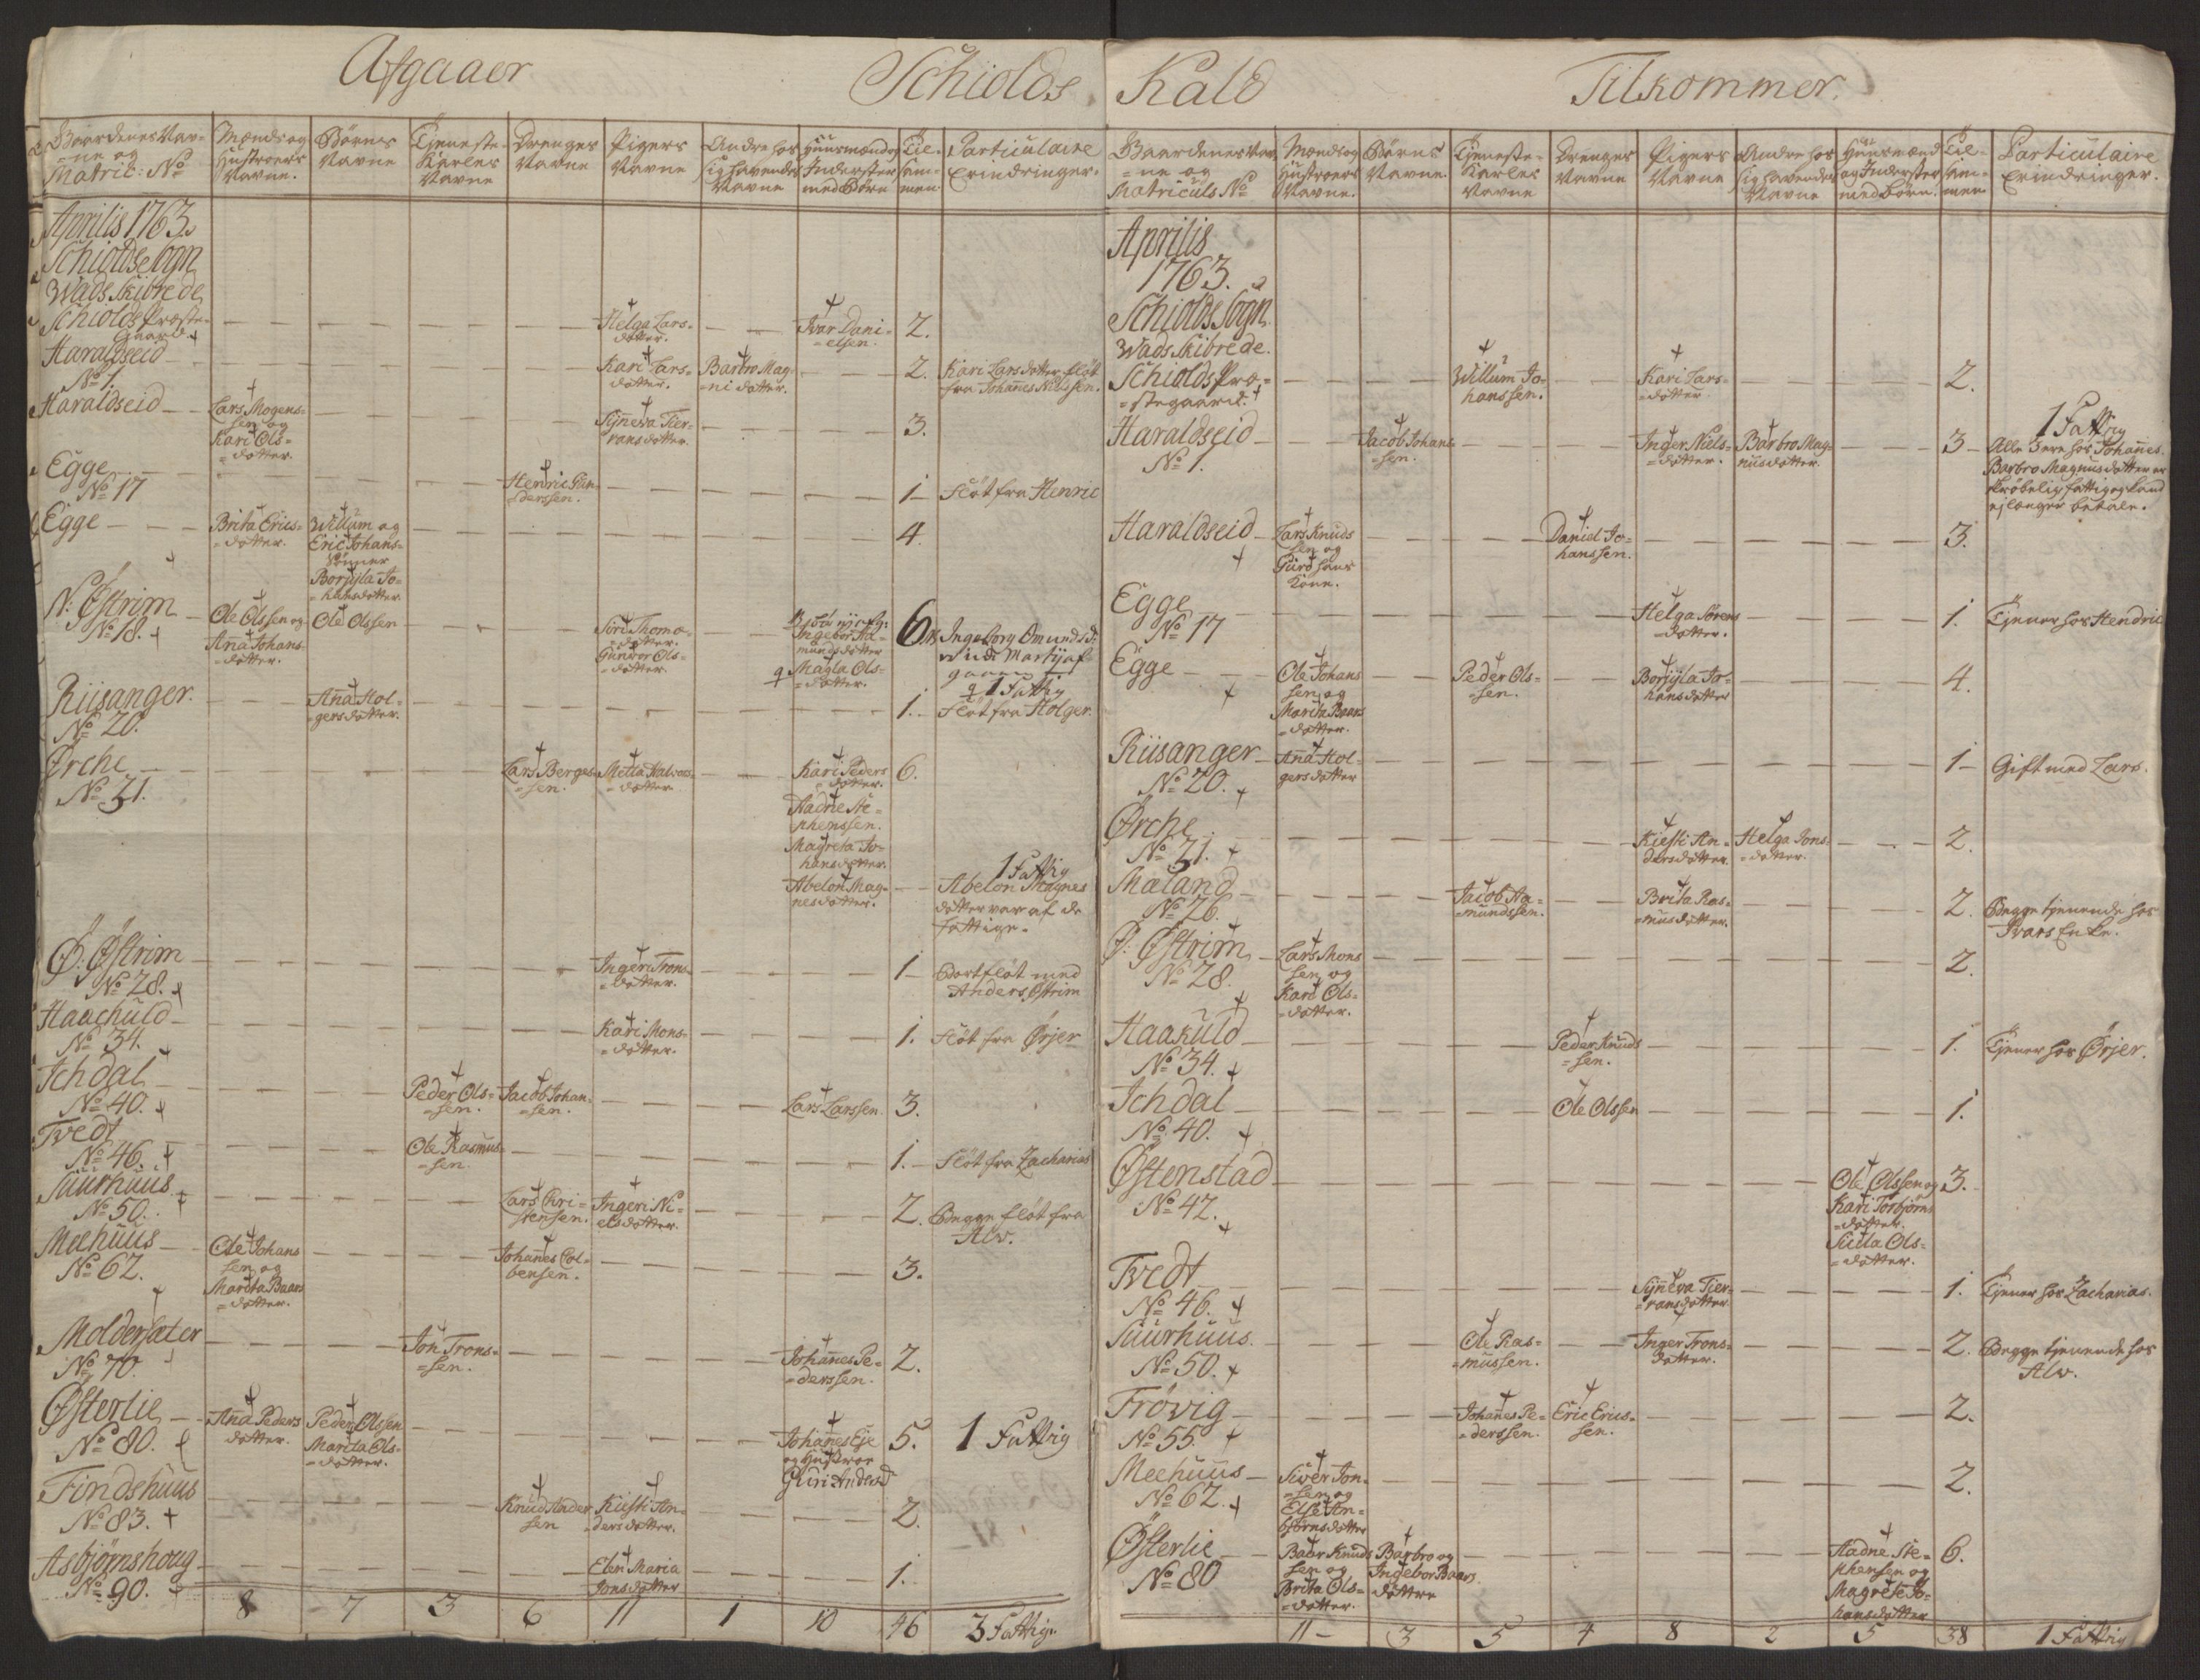 Afgaaer Schiolds
Gaardenes Nav=
=ne og
Matric: No
Mænds og
Hustroers
Navne.
Børnes
Navne
Tjeneste
Karles
Navne
Drenges
Navne
Pigers
Navne
Andre hos
sig havendes
Navne
Huusmænd og
Inderster
med Børn
Til-
sam-
men
Particulaire
Erindringer.
Aprilis 1763.
Schiolds Sogn
Wads Skibrede
Schiolds Præste-
gaard.
Helga Lars-
dotter.
Ivar Dani-
=elsen.
2.
Haraldseid
No 1.
Kari Lars-
dotter.
Barbro Mag-
=ni dotter.
2.
Kari Larsdotter fløt
fra Johanes Nilssen.
Haraldseid
Lars Mogens-
sen og
Kari Ols-
=dotter.
Sÿneva Tier-
randsdotter.
3.
Egge
No 17
Henric Gun-
derssen.
1
Fløt fra Henric
Egge
Brita Erics-
=dotter.
Willum og
Eric Johans-
Sønner
Borgijla Jo-
=hansdotter
4.
N: Østrim
No 18.
Ole Olssen og
Ana Johans-
=dotter.
Ole Olssen
Siri Thomæ-
=dotter.
Gunvor Ols-
=dotter.
Ingebor Aa-
mundsdotter
Magla Ols-
=dotter.
6
Ingeborg Omundsd:
1 Fattig
Riisanger.
No 20.
Ana Hol-
=gersdotter.
1.
Fløt fra Holger.
Ørche
No 21.
Lars Berges-
=sen.
Metta Halvors-
=dotter
Kari Peders
=dotter.
6.
Aadne Ste-
phenssen.
Magreta Jo-
hansdotter.
Abelon Mag-
nesdotter.
1 Fattig
Abelon Magnes
dotter var af de
fattige.
Ø: Østrim
No 28.
Ingeri Trons-
=dotter.
1
Bortfløt med
Anders Østrim
Haachuld
No 34.
Kari Mons-
=dotter.
1.
Fløt fra Ørjer
Ichdal
No 40.
Peder Ols-
=sen.
Jacob Johan-
=sen.
Lars Larssen.
3.
Tvedt
No 46.
Ole Rasmus-
=sen.
1.
Fløt fra Zacharias
Suurhuus
No 50.
Lars Chri-
stensen.
Ingeri Ni-
elsdotter.
2.
Begge fløt fra
Alv.
Meehuus
No 62.
Ole Johans
sen og
Marita Baars
=dotter.
Johanes Col-
bensen.
3.
Moldersæter
No 70.
Jon Trons-
=sen.
Johanes Pe-
=derssen.
2.
Østerlie
No 80.
Ana Peders
dotter.
Peder Olssen
Marita Ols-
=dotter.
Johanes Eje
og Hustroe
Guri Andersd
5.
1 Fattig
Findshuus
No 83.
Knud Ander
sen
Kiesti An-
dersdotter.
2.
Asbjørnshoug
No 90.
Elen Maria
Jonsdotter
1.
8 7 3 6 11 1 10 46 3 Fattige
Kald Tilkommer.
Gaardenes Nav-
=ne og
Matriculs No
Mænds og
Hustroers
Navne.
Børns
Navne.
Tjeneste-
Karles
Navne
Drenges
Navne
Pigers
Navne
Andre hos
sig havendes
Navne
Huusmænd
og Inderster
med Børn.
Til-
sam-
men
Particulaire
Erindringer.
Aprilis
1763.
Schiolds Sogn
Wads Skibrede.
Schiolds Præ-
=stegaard.
Willum Jo-
hanssen.
Kari Lars-
=dotter
2.
Haraldseid
No 1.
Jacob Johans
=sen.
Inger Niels-
=dotter.
Barbro Mag-
nusdotter.
3
1 Fattig
Alle 3 ere hos Johanes.
Barbro Magnusdotter er
skrøbelig fattig og kand
ej længer betale.
Haraldseid
Lars Knuds
sen og
Gurd hans
Kone.
Daniel Jo-
hanssen.
3.
Egge
No 17
Helga Sørens
=dotter.
1.
Tjener hos Hendric
Egge
Ole Johans
sen og
Marita Baars
=dotter.
Peder Ols-
=sen.
Borgijla Jo-
hansdotter
4.
Riisanger
No 20.
Ana Hol-
gersdotter
1
Gift med Lars.
Ørche
No 21.
Kiesti An-
dersdotter.
Helga Jons-
=dotter.
2.
Mæland
No 26.
Jacob Aa-
=mundssen.
Brita Ras-
=musdotter.
2.
Begge tjenende hos
Ivars Enke.
Ø: Østrim
No 28.
Lars Mons
sen og
Kari Ols-
=dotter.
2.
Haakuld
No 34.
Peder Knuds
=sen.
1.
Tjener hos Ørjer.
Ichdal
No 40.
Ole Olssen
1.
Østenstad
No 42.
Ole Olssen og
Kari Torbjørns
=dotter.
Sicila Ols-
=dotter.
3.
Tvedt
No 46.
Sÿneva Tier-
=randsdotter
1.
Tjener hos Zacharias.
Suurhuus.
No 50.
Ole Ras-
=mussen.
Inger Trons-
dotter.
2.
Begge tjenende hos
Alv.
Frøvig
No 55.
Johanes Pe-
=derssen.
Eric Erics-
sen.
2.
Meehuus
No 62.
Siver Jon-
=sen og
Else An-
bjørnsdotter
2.
Østerlie
No 80
Baar Knuds
sen og
Brita Ols-
=dotter.
Barbro og
Ingebor Baars
døttre
Aadne Ste-
phensen og
Magrete Jo-
hansdotter
6.
11 3 5 4 8 2 5 38 1 Fattig